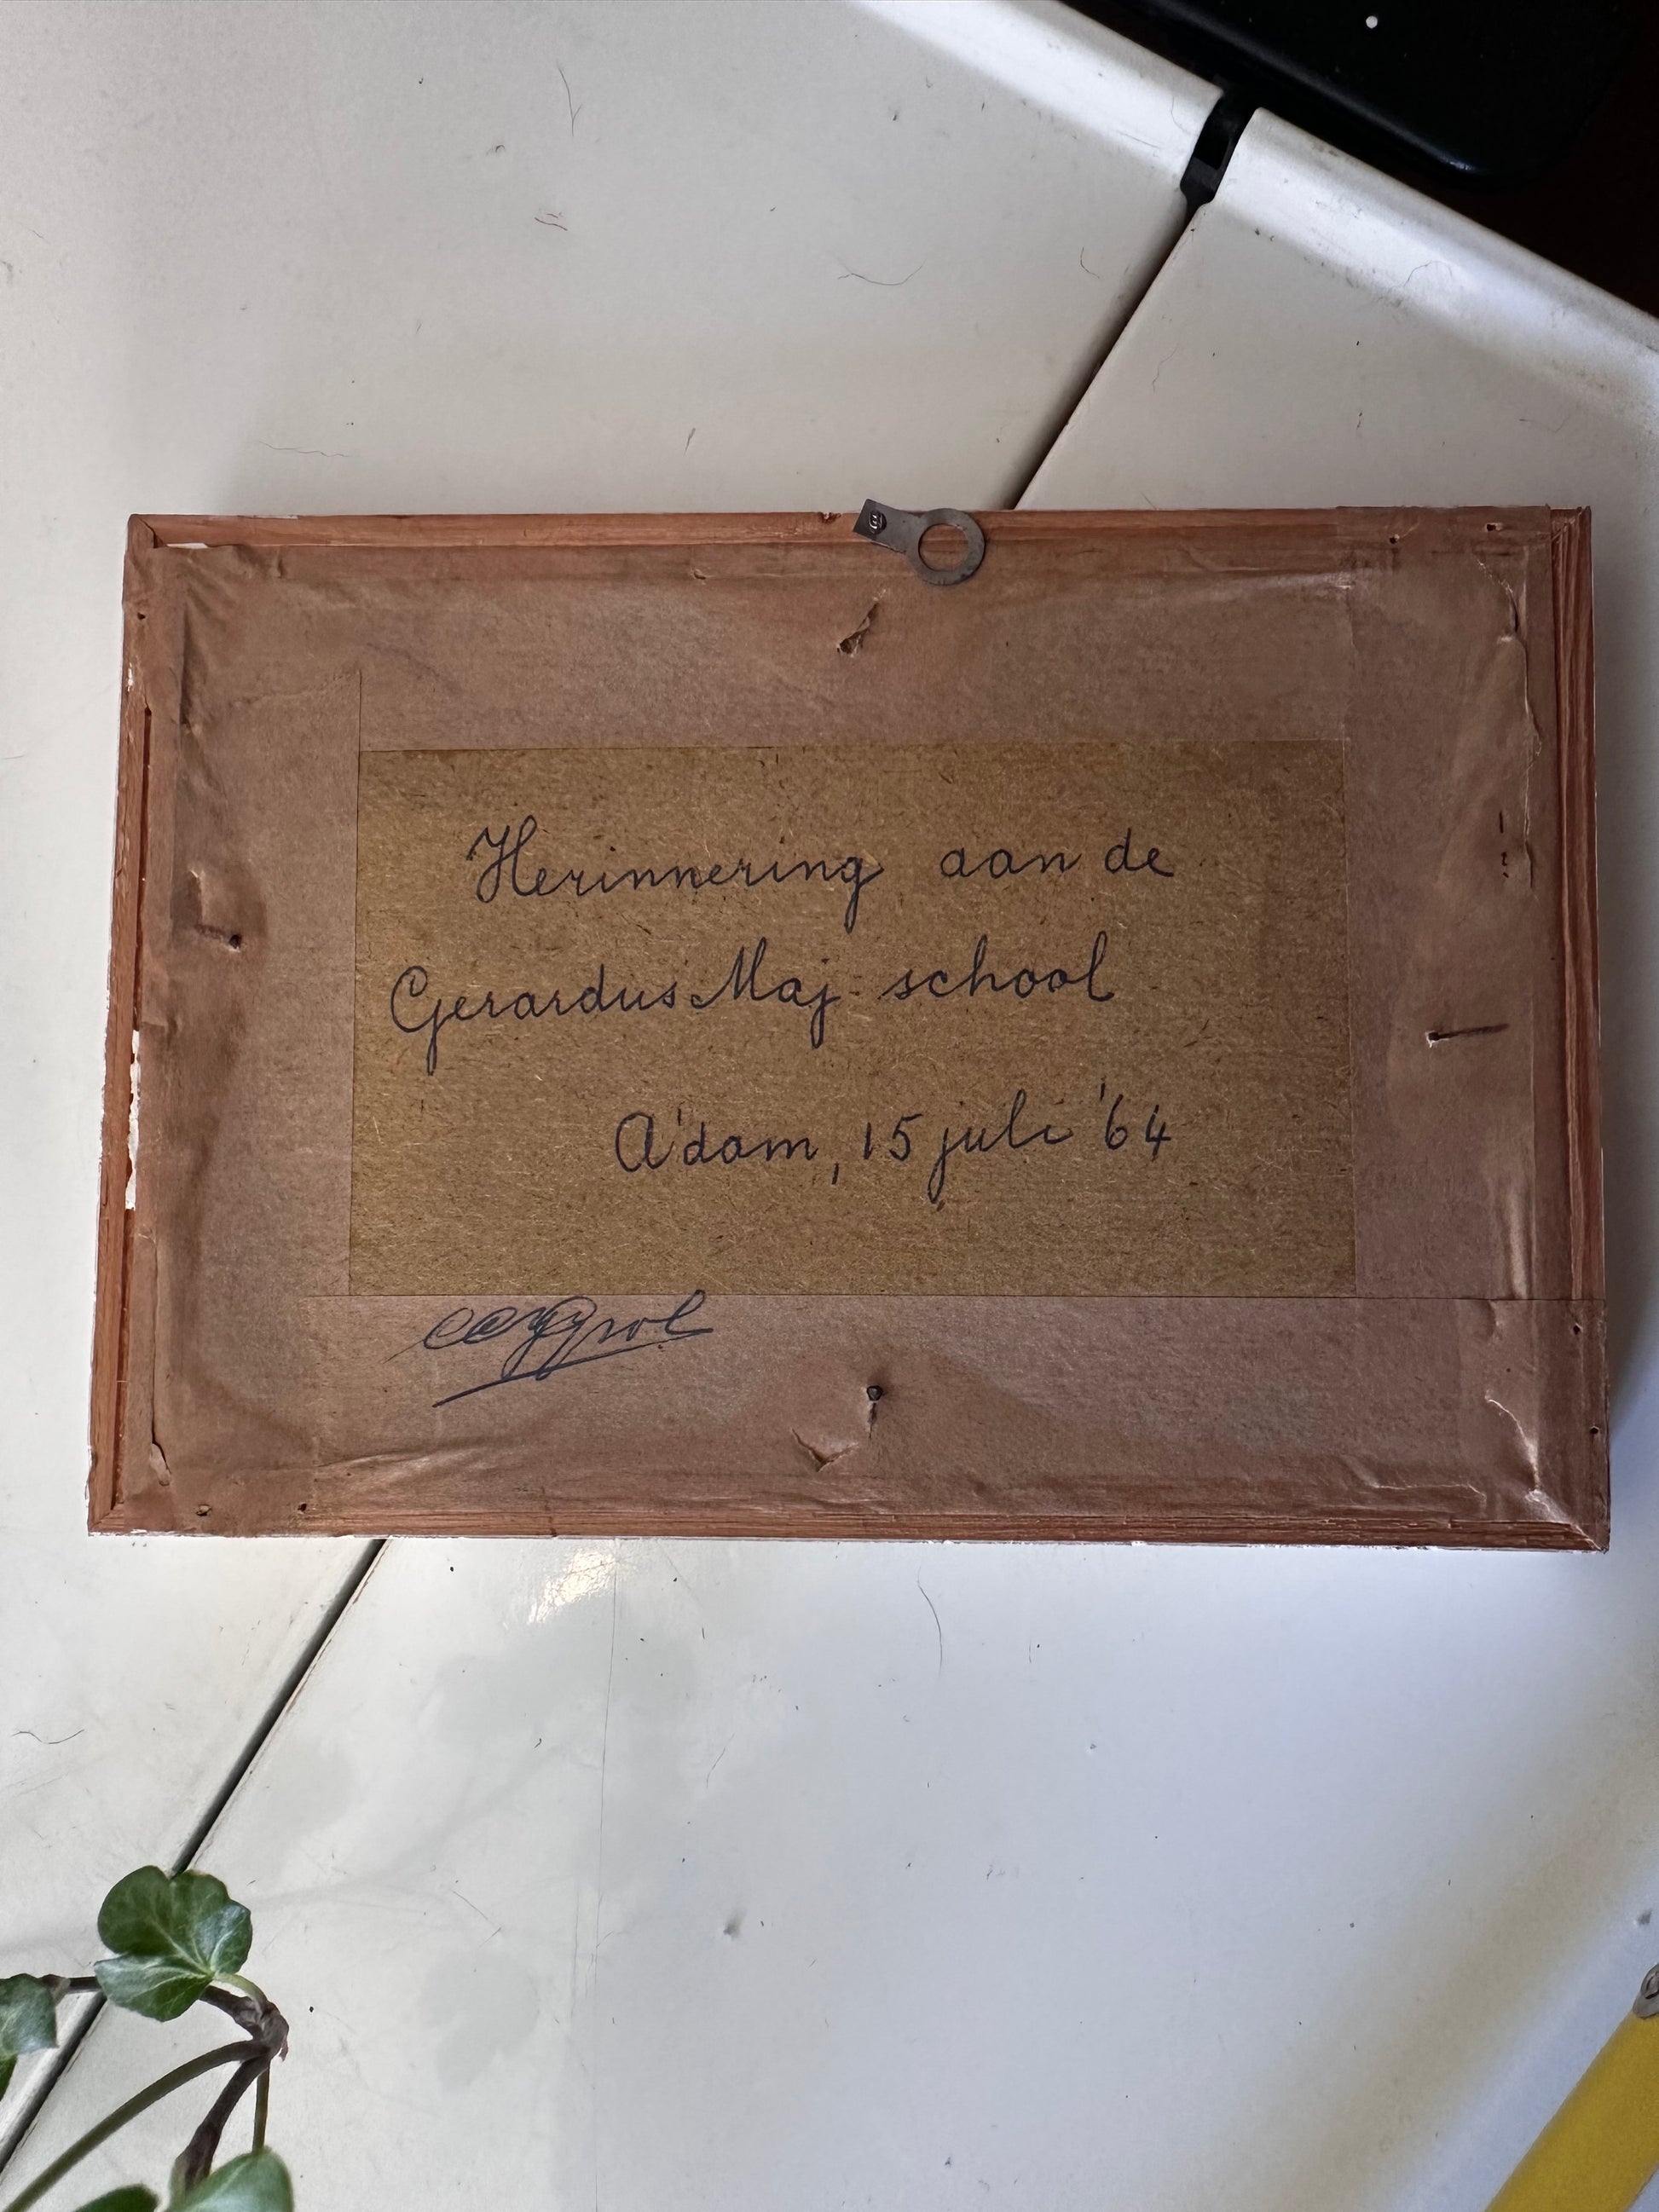 Herinnering aan de
Gerardus Maj. school
A'dam, 15 juli '64